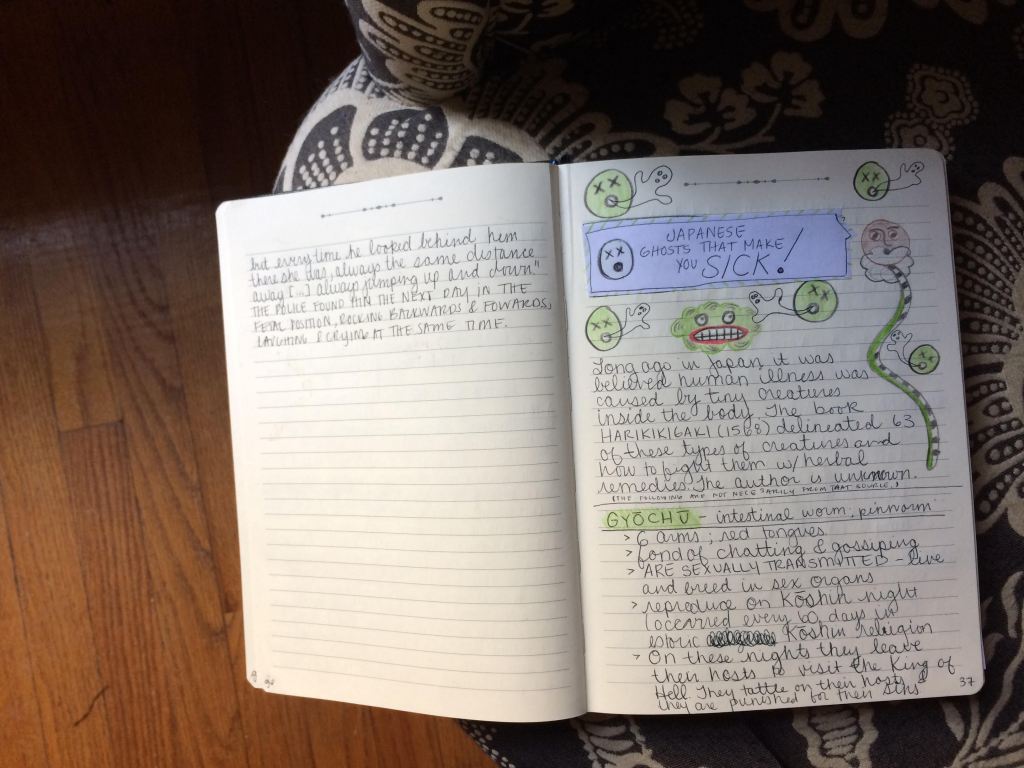 but every time he looked behind him
there she was, always the same distance
away [...] always jumping up and down"
THE POLICE FOUND HIM THE NEXT DAY IN THE
FETAL POSITION, ROCKING BACKWARDS & FOWARDS,
LAUGHING & CRYING AT THE SAME TIME.
JAPANESE
GHOSTS THAT MAKE
YOU SICK!
Long ago in Japan it was
believed human illness was
caused by tiny creatures
inside the body. The book
HARIKIKIGAKI (1568) delineated 63
of these types of creatures and
how to fight them w/ herbal
remedies. The author is unknown.
(THE FOLLOWING ARE NOT NECESARILY FROM THAT SOURCE.)
GYŌCHŪ - intestinal worm; pinworm
> 6 arms; red tongues
> fond of chatting & gossiping
> ARE SEXUALLY TRANSMITTED - live
and breed in sex organs
> reproduce on Kōshin night
(ocerred every 60 days in
estoric Kōshin releigion
> On these nights they leave
their hosts to visit the King of
Hell. They tattle on their hosts &
they are punished for their sins
37